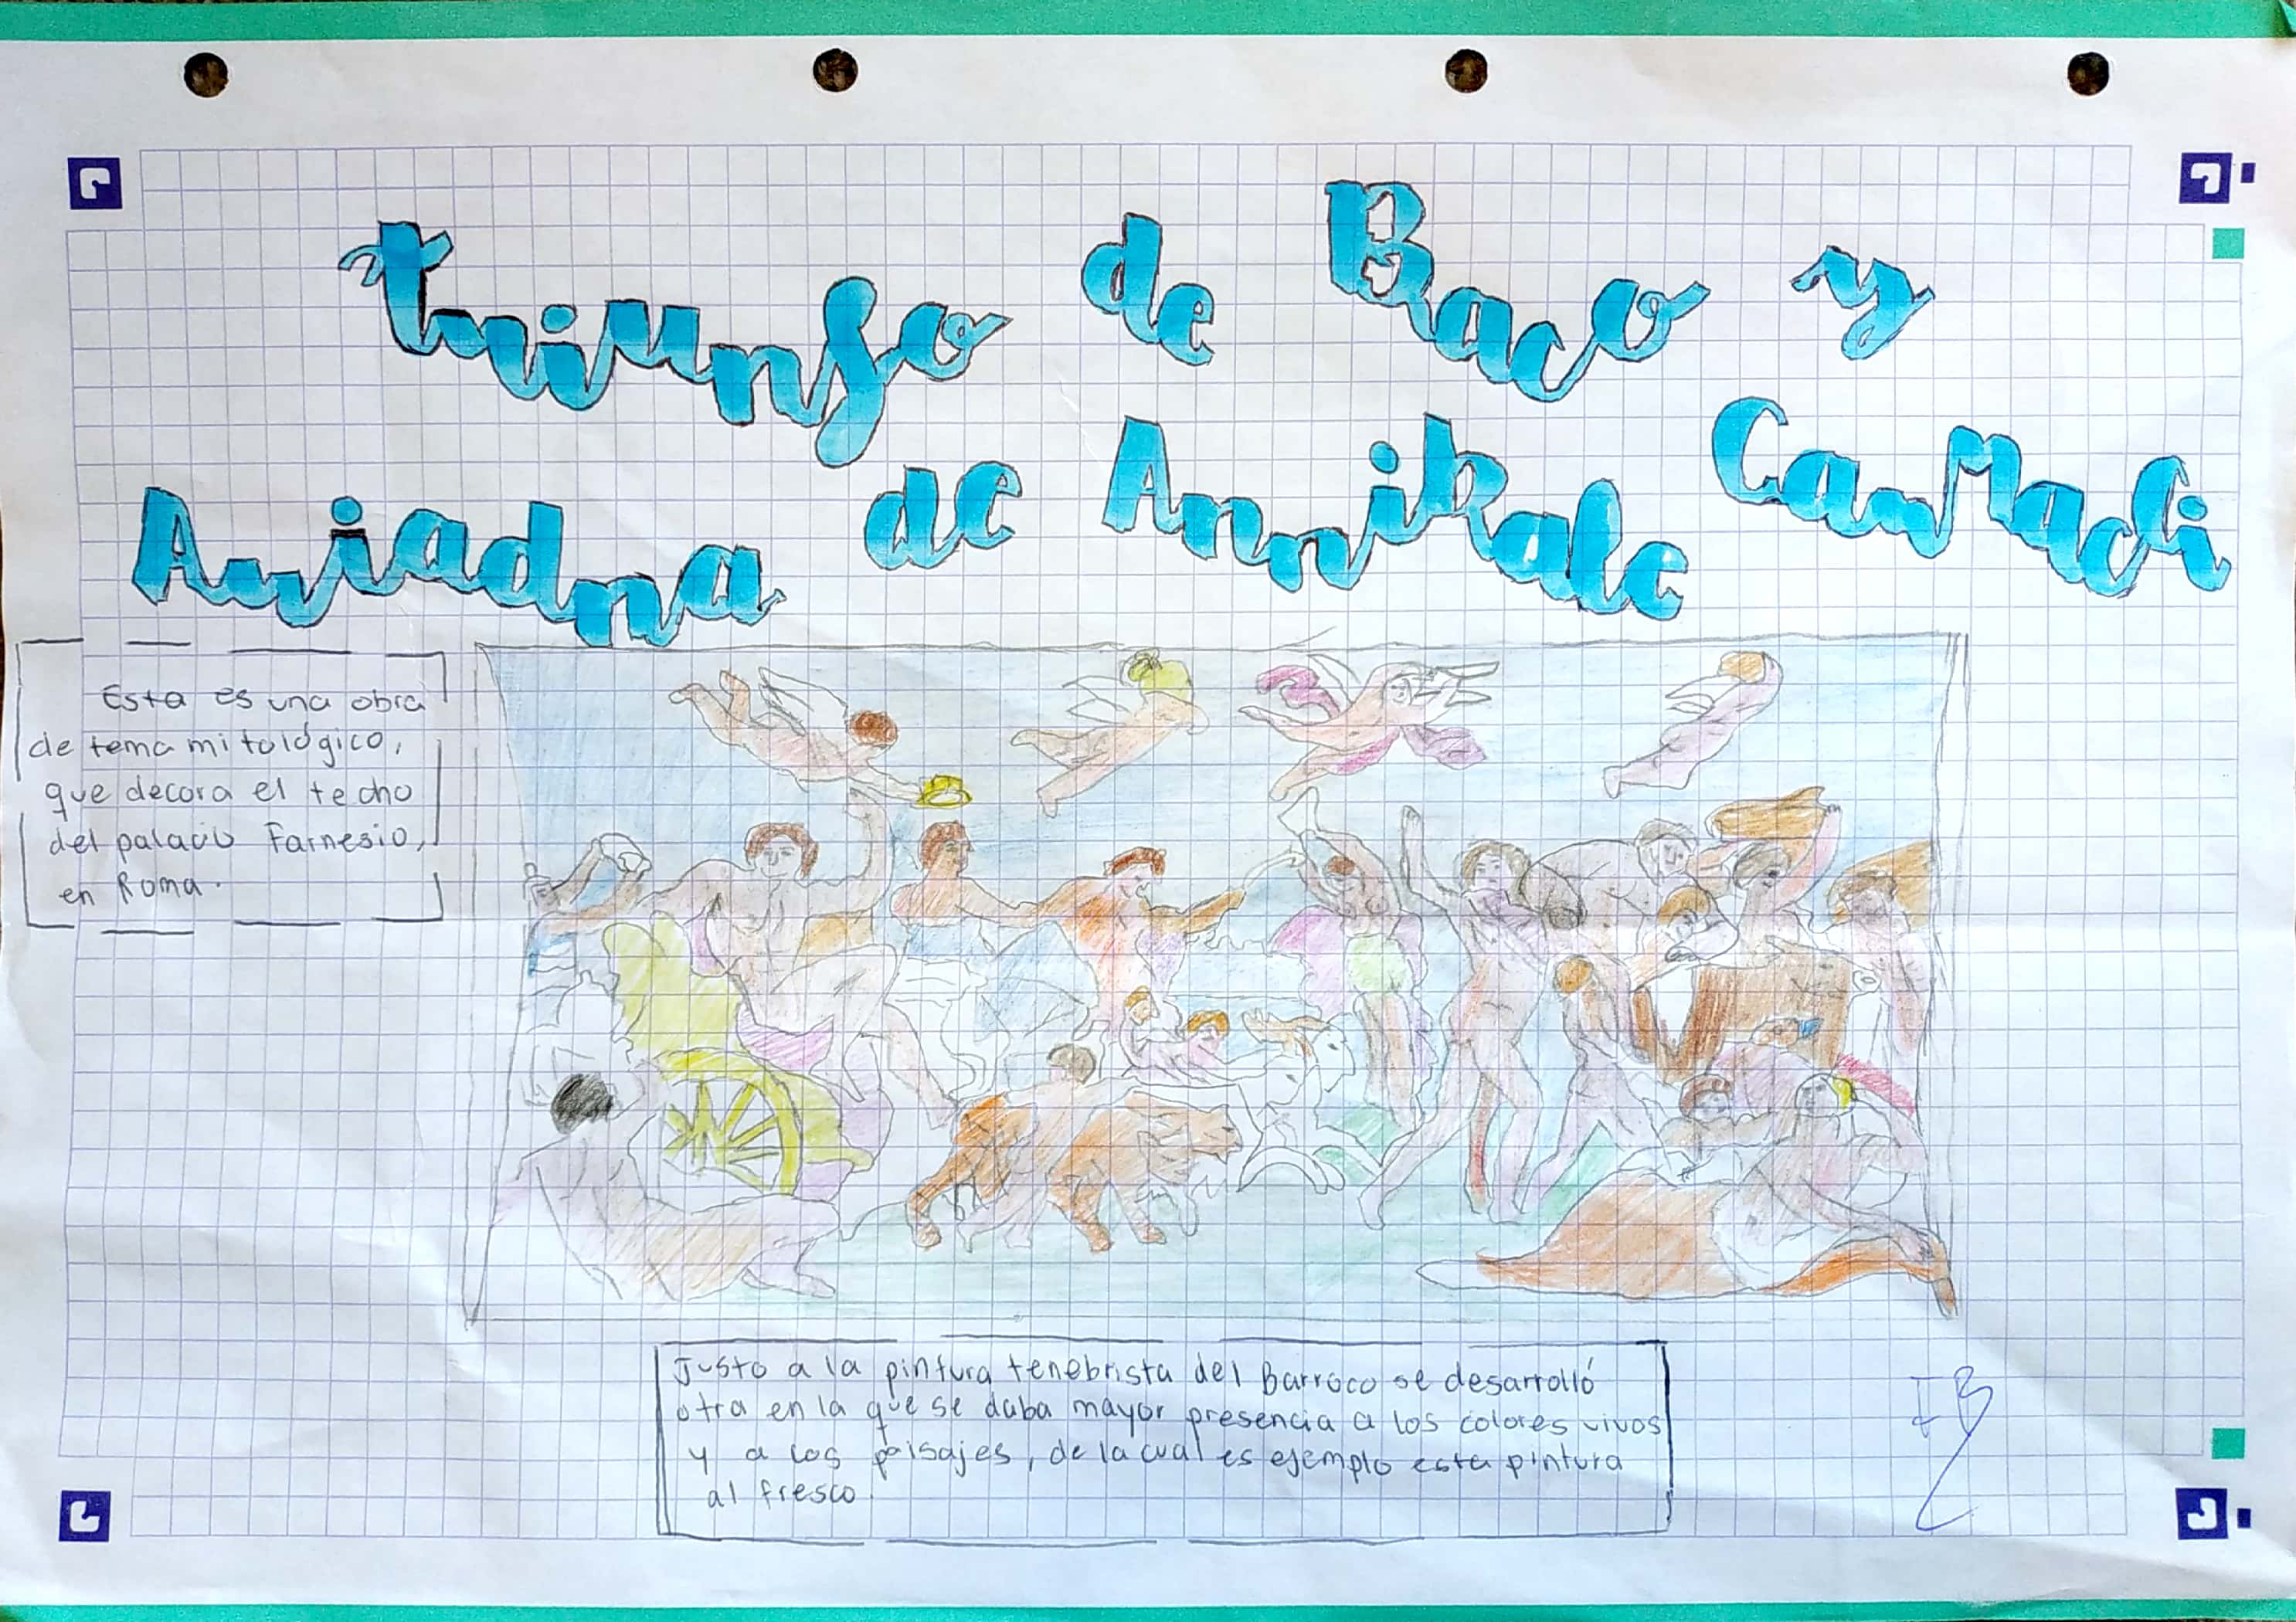 triunfo de Baco y
Ariadna de Annibale Carracci
Esta es una obra
de tema mitológico,
que decora el techo
del palacio Farnesio,
en Roma.
Justo a la pintura tenebrista del Barroco se desarrolló
otra en la que se daba mayor presencia a los colores vivos
y a los paisajes, de la cual es ejemplo esta pintura
al fresco.